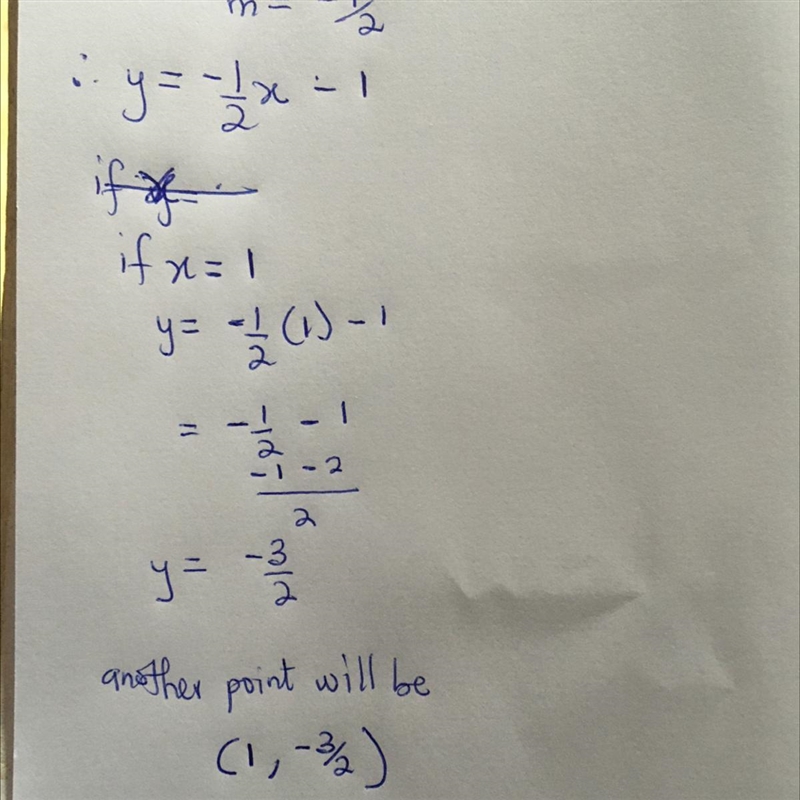 m = -1/2
∴ y = -1/2 x - 1
if
if x = 1
y = -1/2 (1) - 1
= -1/2 - 1
-1 - 2
2
y = -3/2
another point will be
(1, -3/2)